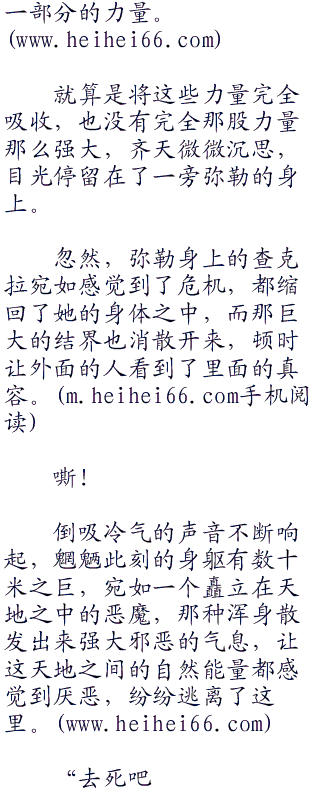 一部分的力量。
(www.heihei66.com)
就算是将这些力量完全
吸收，也没有完全那股力量
那么强大，齐天微微沉思，
目光停留在了一旁弥勒的身
上。
忽然，弥勒身上的查克
拉宛如感觉到了危机，都缩
回了她的身体之中，而那巨
大的结界也消散开来，顿时
让外面的人看到了里面的真
容。(m.heihei66.com手机阅
读)
嘶！
倒吸冷气的声音不断响
起，魍魉此刻的身躯有数十
米之巨，宛如一个矗立在天
地之中的恶魔，那种浑身散
发出来强大邪恶的气息，让
这天地之间的自然能量都感
觉到厌恶，纷纷逃离了这
里。(www.heihei66.com)
“去死吧